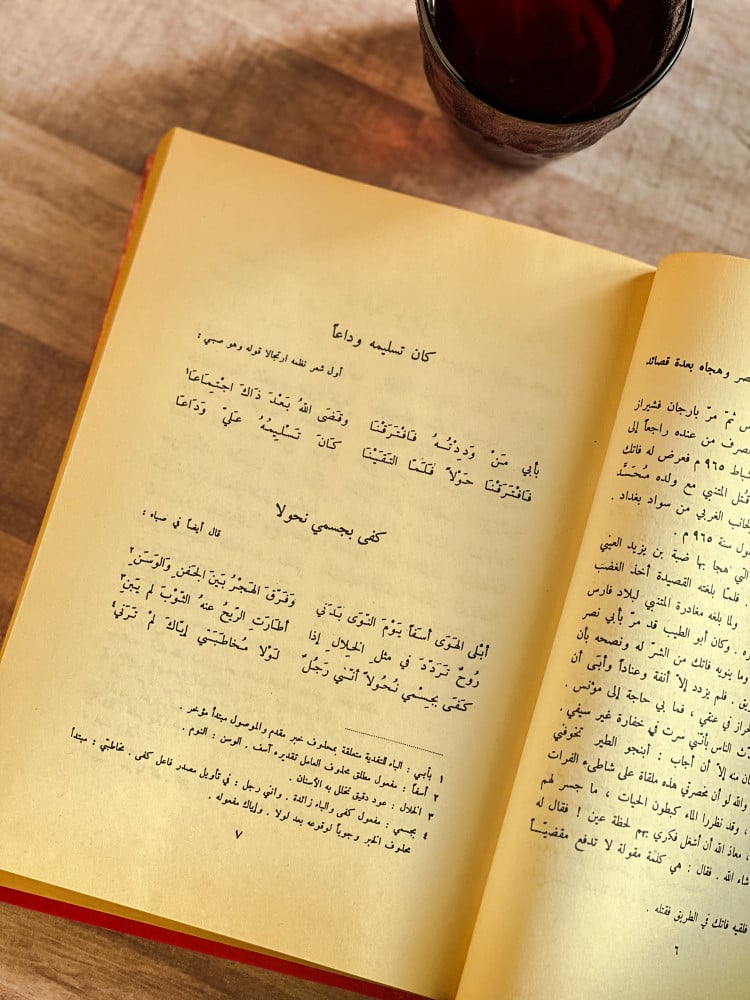 نصر وهجاه بعدة قصائد
ثمّ مرّ بارجان فشيراز
صرف من عنده راجعاً إلى
شباط ٩٦٥ م فعرض له فاتك
قُتل المتنبي مع ولده مُحَسَّد
لجانب الغربي من سواد بغداد .
سنة ٩٦٥ م .
التي هجا بها ضبة بن يزيد العيني
فلمّا بلغته القصيدة أخذ الغضب
ولما بلغه مغادرة المتنبي لبلاد فارس
وكان أبو الطيب قد مرّ بأبي نصر
وما ينويه فاتك من الشرّ له ونصحه بأن
. فلم يزدد إلاّ أنفة وعناداً وأبَى أن
في عنقي ، فما بي حاجة إلى مؤنس .
الناس بأنّني سرت في خفارة غير سيفي .
منه إلاّ أن أجاب : أبنجو الطير تخوفني
والله لو أن مخصرتي هذه ملقاة على شاطىء الفرات
، وقد نظروا الماء كبطون الحيات ، ما جسر لهم
، معاذ الله أن أشغل فكري بهم لحظة عين ! فقال له
شاء الله . فقال : هي كلمة مقولة لا تدفع مقضيّاً
فلقيه فاتك في الطريق فقتله .
٦
كان تسليمه وداعاً
أول شعر نظمه ارتجالا قوله وهو صبي :
بأبي مَنْ وَدِدْتُهُ فَافْتَرَقْنَا وقَضَى اللهُ بَعْدَ ذَاكَ اجْتِمَاعَا١
فَافْتَرَقْنَا حَوْلاً فَلَمّا التَقَيْنَا كَانَ تَسْلِيمُهُ عَلَيّ وَدَاعَا
كفى بجسمي نحولا
قال أيضاً في صباه :
أبْلى الهَوَى أسَفاً يَوْمَ النّوَى بَدَني وَفَرّقَ الهَجْرُ بَينَ الجَفنِ وَالوَسَنِ٢
رُوحٌ تَرَدّدَ في مثلِ الخِلالِ إذا أطَارَتِ الرّيحُ عنهُ الثّوْبَ لم يَبِنِ٣
كَفَى بجِسْمي نُحُولاً أنّني رَجُلٌ لَوْلا مُخاطَبَتي إيّاكَ لمْ تَرَني٤
١ بأبي : الباء للتفدية متعلقة بمحذوف خبر مقدم والموصول مبتدأ مؤخر .
٢ أسفاً : مفعول مطلق محذوف العامل تقديره آسف . الوسن : النوم .
٣ الخلال : عود دقيق تخلل به الأسنان .
٤ بجسمي : مفعول كفى والباء زائدة . وأنني رجل : في تأويل مصدر فاعل كفى . مخاطبتي : مبتدأ
محذوف الخبر وجوباً لوقوعه بعد لولا . وإياك مفعوله .
٧